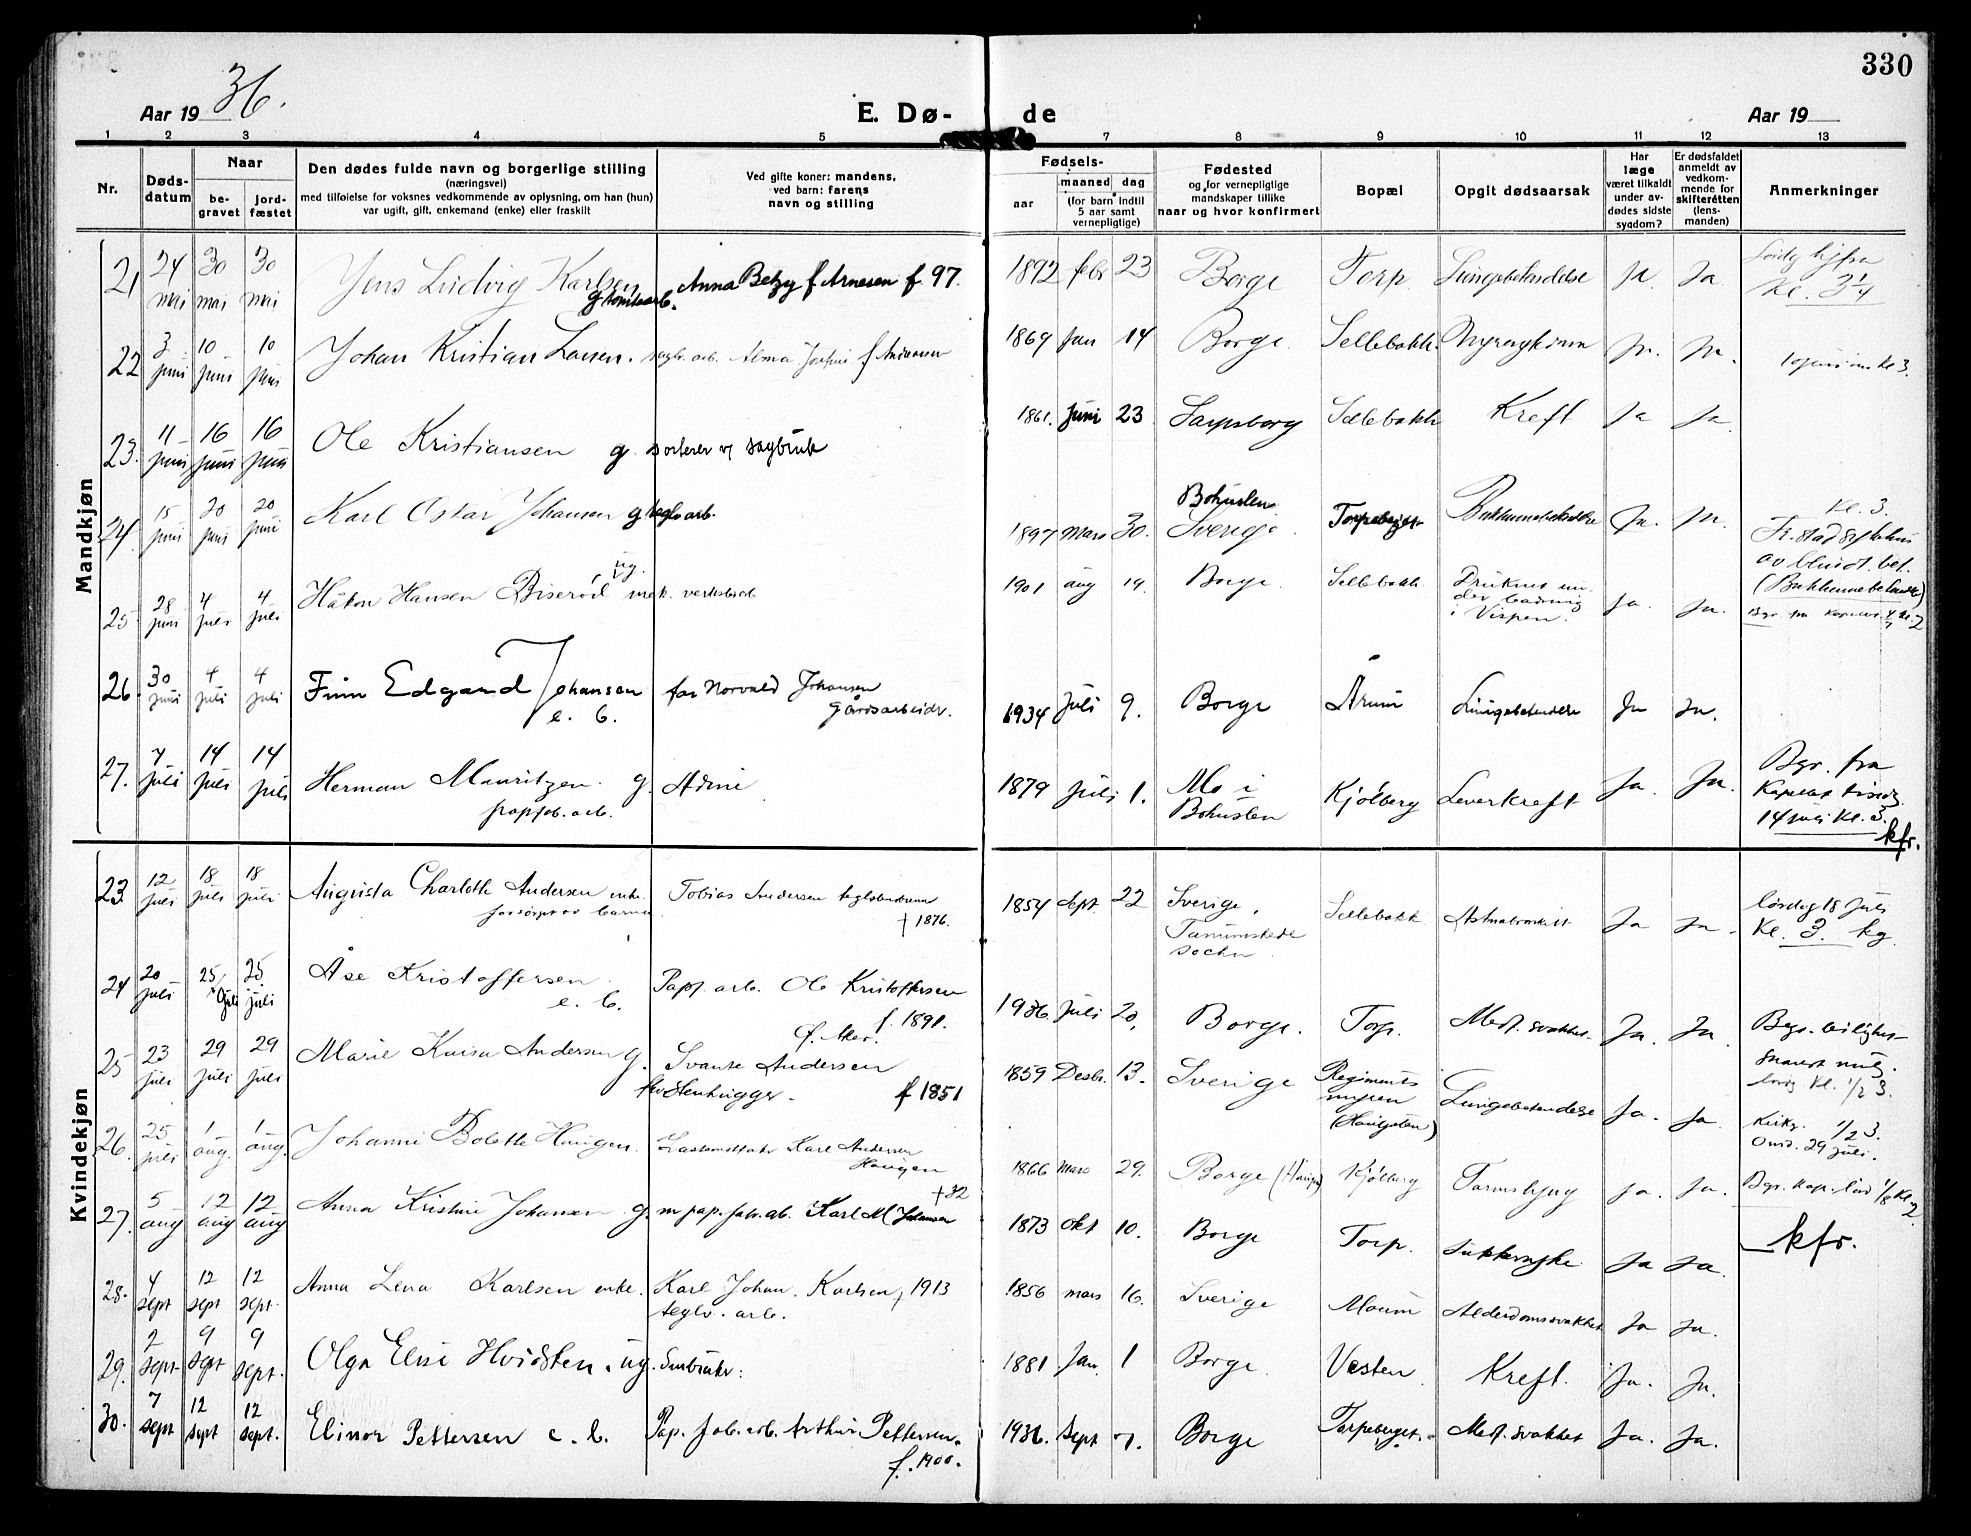 330
Aar 1936.
E. Dø-
de
Aar 19
1 2 3 4 5 7 8 9 10 11 12 13
Nr.
Døds-
datum
Naar
be-
gravet
jord-
fæstet
Den dødes fulde navn og borgerlige stilling
(næringsvei)
med tilføielse for voksnes vedkommende av oplysning, om han (hun)
var ugift, gift, enkemand (enke) eller fraskilt
Ved gifte koner: mandens,
ved barn: farens
navn og stilling
Fødsels-
aar
maaned
dag
(for barn indtil
5 aar samt
vernepligtige)
Fødested
og for vernepligtige
mandskaper tillike
naar og hvor konfirmert
Bopæl
Opgit dødsaarsak
Har
læge
været tilkaldt
under av-
dødes sidste
sygdom?
Er dødsfaldet
anmeldt av
vedkom-
mende for
skifteretten
(lens-
manden)
Anmerkninger
Mandkjøn
21 24 mai 30 mai 30 mai Jens Ludvig Karlsen g. tomtearb. Anna Betzy f Arnesen f 97. 1892 febr 23 Borge Torp Lungebetendelse Ja. Ja. Kl. 3 1/4
22 3 juni 10 juni 10 juni Johan Kristian Larsen. 1869 Jan 14 Borge. Sellebakk. Ja. Ja. 10 juni Kl 3.
23. 11 juni 16 juni 16 juni Ole Kristiansen g. sorterer v/ sagbruk 1861. Juni 23 Sarpsborg Sellebakk Kreft Ja Ja
24. 15 juni 20 juni 20 juni Karl Oskar Johansen g teglv. arb. 1897 Mars 30. Bohuslen Sverige Torpeberget Bukhinnebetendelse Ja. Ja. Kl. 3.
Fr.stad sykehus
av blindt. bet.
(Bukhinnebetendelse)
25 28 juni 4 juli 4 juli Håkon Hansen Biserød, ug. mek. verkstedarb. 1901 aug 19. Borge. Sellebakk. Druknet un-
der badning
i Vispen. Ja. Ja. Bgr. fra Kapellet 4/7 Kl. 2
26. 30 juni 4 juli 4 juli Finn Edgard Johansen e. b. far Norvald Johansen
gårdsarbeider. 1934 Juli 9. Borge Årum Lungebetendelse Ja Ja.
27. 7 juli 14 juli 14 juli Herman Mauritzen. g. papfab. arb. Adine 1879 Juli 1. Mo i
Bohuslen Kjølberg Leverkreft Ja. Ja. Bgr. fra
Kapellet tirsdag
14 juli Kl. 3.
kfr.
Kvindekjøn
23. 12 juli 18 juli 18 juli Augusta Charlotte Andersen enke.
forsørget av barna Tobias Andersen
† 1876. 1854 Sept. 22 Sverige,
Tanumshede
sochn. Sellebakk Astmabronkitt Ja Ja. lørdag 18 juli
Kl. 3. kg.
24 20 juli 25 juli 25 juli Åse Kristoffersen.
e. b. Papf. arb. Ole Kristoffersen
f. 1891. 1936 Juli 20. Borge. Torp. Medf. svakhet. Ja. Ja
25 23 juli 29 juli 29 juli Marie Luisa Andersen g. Svante Andersen
fhv Stenhugger. f 1851 1859 Desbr. 13. Sverige Regiments
myren
(Haugsten) Lungebetendelse Ja. Ja. Kirkg. 1/2 3.
Onsd. 29 juli.
26. 25 juli 1 aug. 1 aug. Johanne Bolette Haugen. Karl Andersen
Haugen †32 1866 Mars 29. Borge Kjølberg Tarmslyng Ja. Ja. Bgr. Kap. lørd 1/8 Kl. 2.
27. 5 aug 12 aug 12 aug Anna Kristine Johansen g. m pap. fab. ab. Karl M Johansen 1873 Okt 10. Borge Torp. Sukkersyke Ja Ja. kfr.
28. 4 sept 12 sept 12 sept. Anna Lena Karlsen enke. Karl Johan. Karlsen † 1913
teglv. arb. 1856 mars 16. Sverige Moum Alderdomssvakhet Ja Ja.
29. 2 sept 9 sept 9 sept. Olga Elise Hvidsten. ug. Småbruker. 1881 Jan. 1 Borge. Vesten Kreft. Ja. Ja.
30. 7 sept 12 sept 12 sept. Elinor Pettersen e. b. Pap. fab. arb. Arthur Pettersen.
f. 1900. 1936. Sept 7. Borge Torpeberget. Medf. svakhet Ja. Ja.